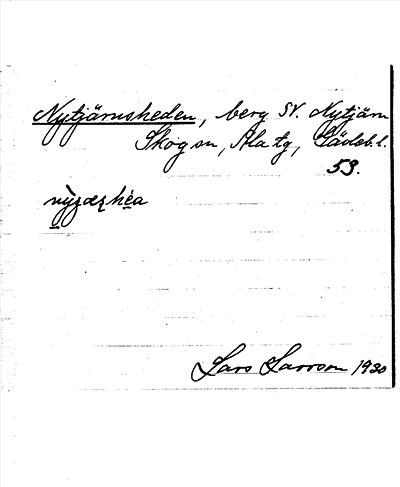 Nytjärnsheden, berg SV. Nytjärn
Skog sn, Ala tg, Gävleb. l.
53.
Lars Larsson 1930